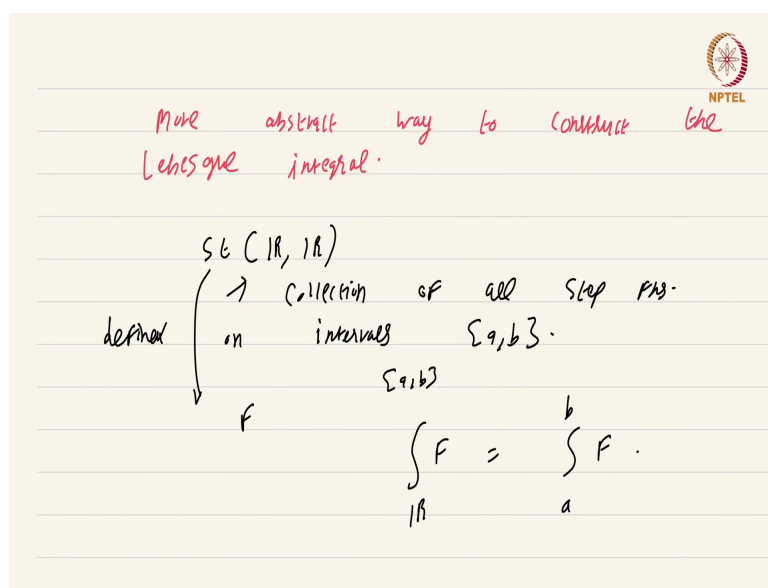 NPTEL
More abstract way to construct the
Lebesgue integral.
St (IR, IR)
↗ collection of all step fns.
defined on intervals {a,b}.
{a,b}
F
∫ F = ∫ F .
b
IR a